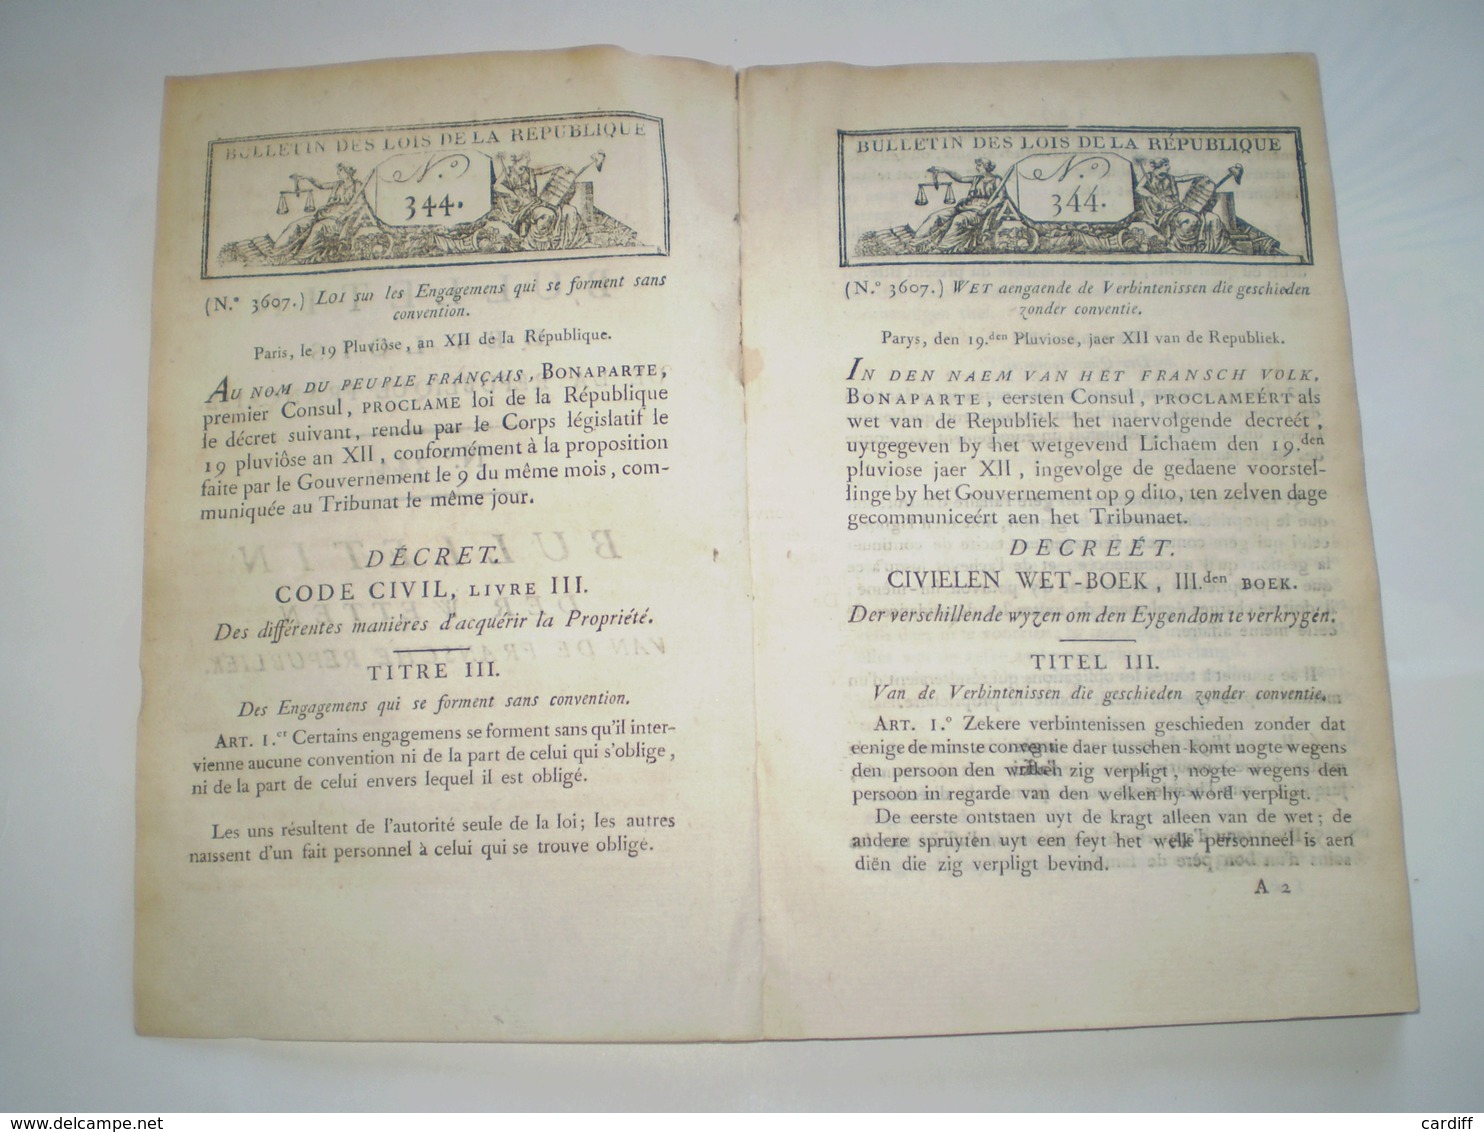 BULLETIN DES LOIS DE LA RÉPUBLIQUE
N.º
344.
(N.º 3607.) LOI sur les Engagemens qui se forment sans
convention.
Paris, le 19 Pluviôse, an XII de la République.
AU NOM DU PEUPLE FRANÇAIS, BONAPARTE,
premier Consul, PROCLAME loi de la République
le décret suivant, rendu par le Corps législatif le
19 pluviôse an XII, conformément à la proposition
faite par le Gouvernement le 9 du même mois, com-
muniquée au Tribunat le même jour.
DÉCRET.
CODE CIVIL, LIVRE III.
Des différentes manières d'acquérir la Propriété.
TITRE III.
Des Engagemens qui se forment sans convention.
ART. 1.er Certains engagemens se forment sans qu'il inter-
vienne aucune convention ni de la part de celui qui s'oblige,
ni de la part de celui envers lequel il est obligé.
Les uns résultent de l'autorité seule de la loi; les autres
naissent d'un fait personnel à celui qui se trouve obligé.
BULLETIN DES LOIS DE LA RÉPUBLIQUE
N.º
344.
(N.º 3607.) WET aengaende de Verbintenissen die geschieden
zonder conventie.
Parys, den 19.den Pluviose, jaer XII van de Republiek.
IN DEN NAEM VAN HET FRANSCH VOLK.
BONAPARTE, eersten Consul, PROCLAMEÉRT als
wet van de Republiek het naervolgende decreét,
uytgegeven by het wetgevend Lichaem den 19.den
pluviose jaer XII, ingevolge de gedaene voorstel-
linge by het Gouvernement op 9 dito, ten zelven dage
gecommuniceért aen het Tribunaet.
DECREÉT.
CIVIELEN WET-BOEK, III.den BOEK.
Der verschillende wyzen om den Eygendom te verkrygen.
TITEL III.
Van de Verbintenissen die geschieden zonder conventie.
ART. 1.º Zekere verbintenissen geschieden zonder dat
eenige de minste conventie daer tusschen-komt nogte wegens
den persoon den welken zig verpligt, nogte wegens den
persoon in regarde van den welken hy word verpligt.
De eerste ontstaen uyt de kragt alleen van de wet; de
andere spruyten uyt een feyt het welk personneél is aen
diën die zig verpligt bevind.
A 2
www.delcampe.net
cardiff